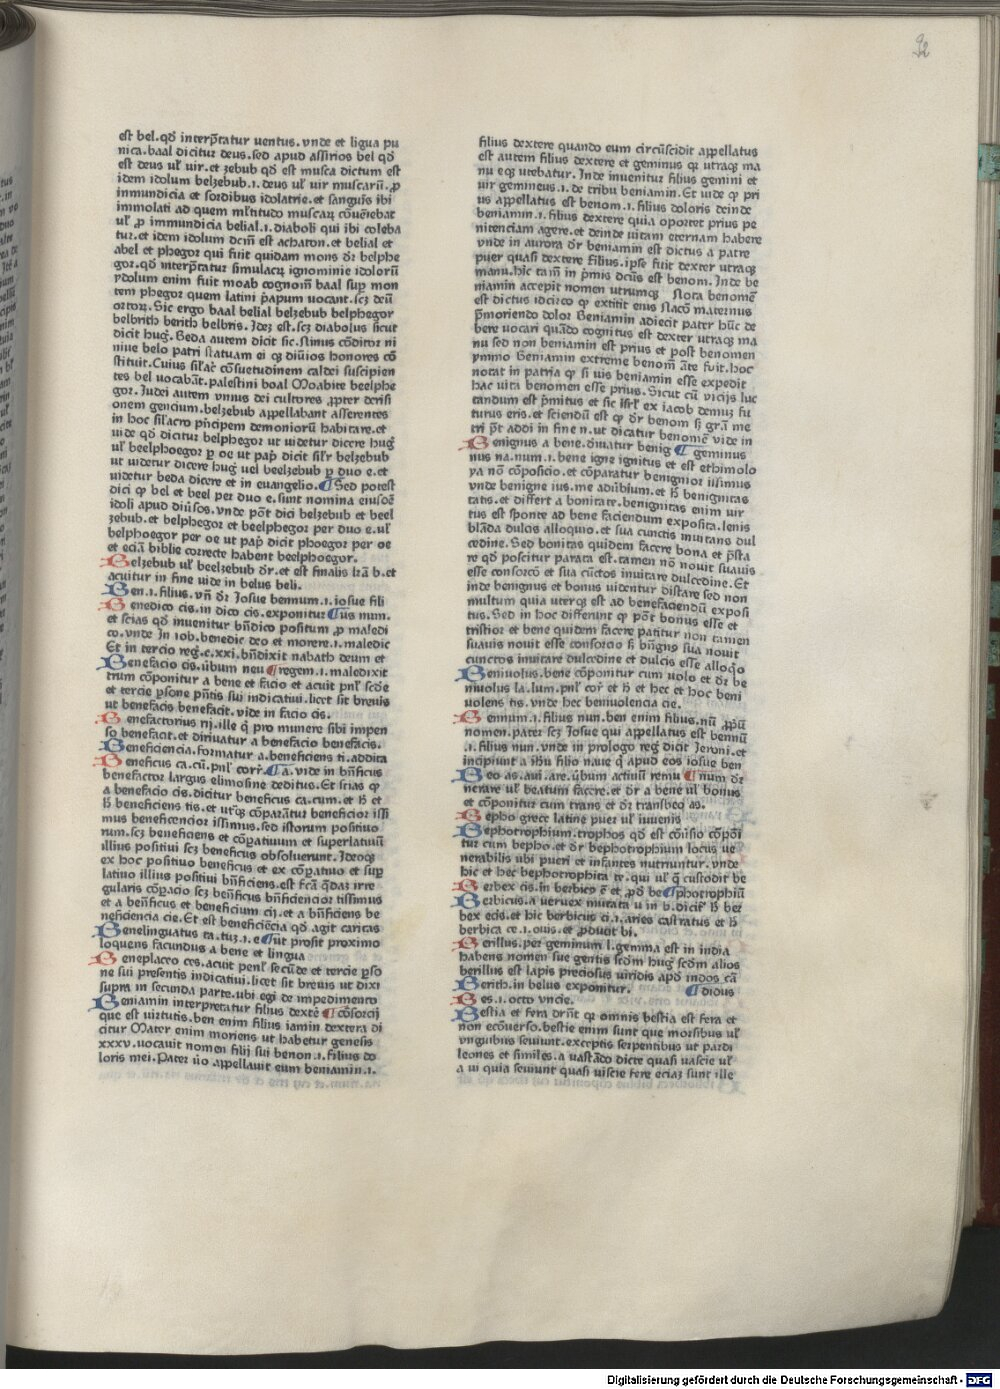 92
est bel.qđ interp̃tatur uentus.vnde et ligua pu
nica.baal dicitur deus.sed apud assirios bel qđ
est deus ul' uir.et zebub qđ est musca dictum est
idem idolum belzebub.i. deus ul' uir muscarū.ꝓ
inmundicia et sordibus idolatrie.et sanguis ibi
immolati ad quem ml'titudo muscaꝝ cōuēiebat
ul' ꝓ immundicia belial.i. diaboli qui ibi coleba
tur.et idem idolum dcm̃ est acharon.et belial et
abel et phegor qui fuit quidam mons dr̃ belphe
gor.qđ interp̃tatur simulacꝝ ignominie idolorū
ydolum enim fuit moab cognom̃ baal sup mon
tem phegor quem latini p̃apum uocant.scz deū
ortoꝝ. Sic ergo baal belial belzebub belphegor
belbrith berith belbris. Idez est.scz diabolus sicut
dicit hug̃. Beda autem dicit sic.Ninus cōditor ni
niue belo patri statuam ei qꝫ diuīos honores cō
stituit. Cuius sil'ac̃ cōsuetudinem caldei suscipien
tes bel uocabāt.palestini boal Moabite beelphe
gor. Iudei autem vnius dei cultores ꝓpter derisi
onem gencium.belzebub appellabant asserentes
in hoc sil'acro p̃ncipem demoniorū habitare.et
uide qđ dicitur belphegor ut uidetur dicere hug̃
ul' beelphoegor ꝑ oe ut pap̃ dicit sil'r belzebub
ut uidetur dicere hug̃ uel beelzebub ꝑ duo e.et
uidetur beda dicere et in euangelio.¶Sed potest
dici qꝫ bel et beel per duo e.sunt nomina eiusdē
idoli apud diũsos.vnde pōt dici belzebub et beel
zebub.et belphegor et beelphegor per duo e.ul'
belphoegor per oe ut pap̃ dicit phoegor per oe
et eciā biblie correcte habent beelphoegor.
Belzebub ul' beelzebub dr̃.et est finalis lr̃a b.et
acuitur in fine uide in belus beli.
Ben.i. filius.vñ dr̃ Iosue bennum.i.iosue fili
Benedico cis.in dico cis.exponitur ¶us num.
et scias qđ inuenitur bñdico positum ꝓ maledi
co.vnde In iob.benedic deo et morere.i.maledic
Et in tercio reg̃.c.xxi.bñdixit nabath deum et
Benefacio cis.ũbum neu ¶regem.i.maledixit
trum cōponitur a bene et facio et acuit pnl' scdē
et tercie ꝑsone pñtis sui indicatiui.licet sit breuis
ut benefacis benefacit.vide in facio cis.
Benefactorius rij.ille q̃ pro munere sibi impen
so benefacit.et diriuatur a benefacio benefacis.
Beneficiencia.formatur a.beneficiens ti.addita
Beneficus ca.cū.pnl' corr̃.¶a.vide in bñficus
benefactor largus elimosine deditus. Et scias qꝫ
a benefacio cis.dicitur beneficus ca.cum.et h̃ et
h̃ beneficiens tis.et utrũqꝫ cōparātur beneficior issi
mus beneficencior issimus.sed istorum positiuo
rum.scz beneficiens et cōparatiuum et superlatiuū
illius positiui scz beneficus obsoluerunt. Ideoqꝫ
ex hoc positiuo beneficus et ex cōpatiuo et sup
latiuo illius positiui bñficiens.est fcā q̃daz irre
gularis cōpacio scz beñficus bñficiencior tissimus
et a beñficus et beneficium cij.et a bñficiens be
neficiencia cie. Et est beneficiēcia qđ agit caritas
Benelinguatus ta.tuz.i.e ¶ut prosit proximo
loquens facundus a bene et lingua
Beneplaceo ces.acuit penl' secūde et tercie ꝑso
ne sui presentis indicatiui.licet sit breuis ut dixi
supra in secunda parte.ubi egi de impedimento
Beniamin interpretatur filius dextē ¶cōsorcij
que est uirtutis.ben enim filius iamin dextera di
citur Mater enim moriens ut habetur genesis
xxxv.uocauit nomen filij sui benon.i.filius do
loris mei. Pater ũo appellauit eum beniamin.i.
filius dextere quando eum circūscidit appellatus
est autem filius dextere et geminus qꝛ utraqꝫ ma
nu eqꝫ utebatur. Inde inuenitur filius gemini et
uir gemineus.i. de tribu beniamin. Et uide qꝫ pri
us appellatus est benom.i. filius doloris deinde
beniamin.i. filius dextere quia oportet prius pe
nitenciam agere.et deinde uitam eternam habere
vnde in aurora dr̃ beniamin est dictus a patre
puer quasi dextere filius.ipse fuit dexter utraqꝫ
manu.hic tam̃ in p̃mis dc̃us est benom. Inde be
niamin accepit nomen utrumqꝫ Nota benomē
est dictus idcirco qꝫ extitit eius flacō maternus
p̃moriendo dolor Beniamin adiecit pater huc̃ de
bere uocari quādo cognitus est dexter utraqꝫ ma
nu sed non beniamin est prius et post benomen
ymmo Beniamin extreme benom̃ āte fuit.hoc
notat in patria qꝫ si uis beniamin esse expedit
hac uita benomen esse prius. Sicut cū vicijs luc
tandum est p̃mitus et sic isrl' ex iacob demuz fu
turus eris.et sciendū est qꝫ dr̃ benom s̃ gr̃a me
tri pr̃t addi in fine n.ut dicatur benomē vide in
Benignus a bene.diuatur benig ¶geminus
nus na.num.i.bene igne ignitus et est ethimolo
ya nō cōposicio.et cōparatur benignior issimus
vnde benigne ius.me aduībium.et h̃ benignitas
tatis.et differt a bonitate.benignitas enim uir
tus est sponte ad bene faciendum exposita.lenis
blāda dulos alloquio.et sua cunctis inuitans dul
cedine. Sed bonitas quidem facere bona et p̃sta
re qđ poscitur parata est.tamen nō nouit suauis
esse consorco et sua cūctos inuitare dulcedine. Et
inde benignus et bonus uidentur distare sed non
multum quia uterqꝫ est ad benefaciendū exposi
tus. Sed in hoc differunt qꝫ pōt bonus esse et
tristior et bene quidem facere patitur non tamen
suauis nouit esse consorcio s̃ bñigno sua nouit
cunctos inuitare dulcedine et dulcis esse alloqo
Beniuolus.bene cōponitur cum uolo et dr̃ be
niuolus la.lum.pnl' cor̃ et h̃ et hec et hoc beni
uolens tis.vnde hec beniuolencia cie.
Bennum.i.filius nun.ben enim filius.nū ꝓp̃ū
nomen.pater scz Iosue qui appellatus est bennū
.i.filius nun.vnde in prologo reg̃ dicit Ieroni.et
incipiunt a ih̃u filio naue q̃ apud eos iosue ben
Beo as.aui.are.ũbum actiuū remu ¶num dr̃
nerare ul' beatum facere.et dr̃ a bene ul' bonus
et cōponitur cum trans et dr̃ transbeo as.
Bepho grece latine puer ul' iuuenis
Bephotrophium.trophos qđ est cōuisio cōpōi
tur cum bepho.et dr̃ bephotrophium locus ue
nerabilis ubi pueri et infantes nutriuntur.vnde
hic et hec bephotrophita te.qui ul' q̃ custodit be
Berbex cis.in berbico ē et ꝓđ be ¶photrophiū
Berbicus.a ueruex mutata u in b.dicit' h̃ ber
bex ecis.et hic berbicus ci.i.aries castratus et h̃
berbica ce.i.ouis.et ꝓduit bi.
Berillus.per geminum l.gemma est in india
habens nomen sue gentis scđm hug̃ scđm alios
berillus est lapis preciosus uiridis apđ indos cā
Berith.in belus exponitur. ¶didus
Bes.i.octo vncie.
Bestia et fera dr̃nt qꝛ omnis bestia est fera et
non ecōuerso.bestie enim sunt que morsibus ul'
vnguibus seuiunt.exceptis serpentibus ut pardi
leones et similes.a vastādo dicte quasi uascie ul'
a ui quia seuiunt quasi uiscie fere eciaz sunt ille
Digitalisierung gefördert durch die Deutsche Forschungsgemeinschaft - DFG